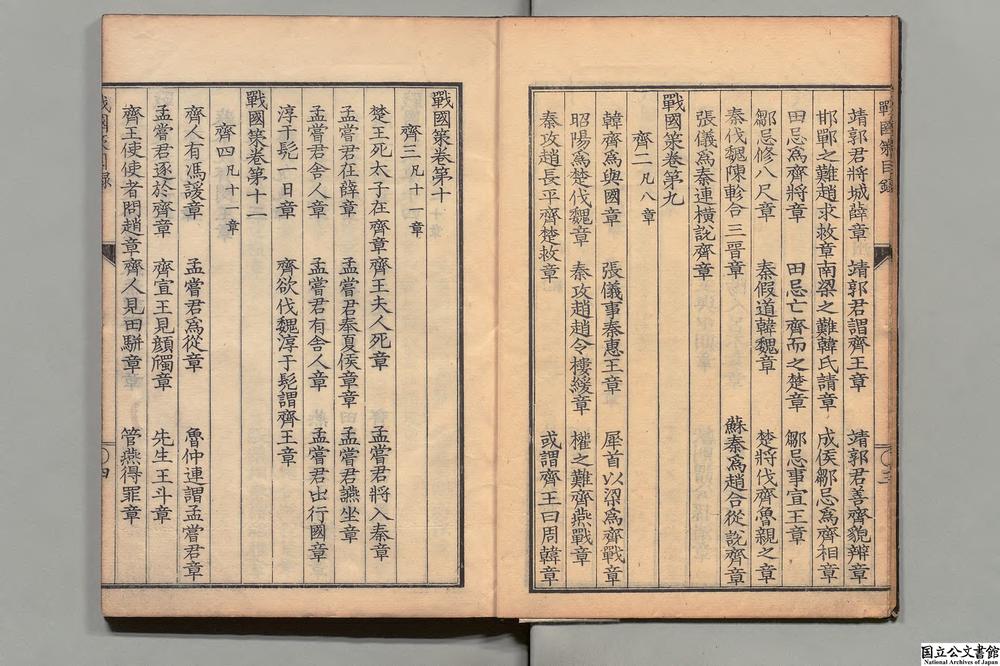 戰國策目錄
靖郭君將城薛章 靖郭君謂齊王章 靖郭君善齊貌辨章
邯鄲之難趙求救章 南梁之難韓氏請章 成侯鄒忌爲齊相章
田忌爲齊將章 田忌亡齊而之楚章 鄒忌事宣王章
鄒忌修八尺章 秦假道韓魏章 楚將伐齊魯親之章
秦伐魏陳軫合三晋章 蘇秦爲趙合從說齊章
張儀爲秦連橫說齊章
戰國策卷第九
齊二 凡八章
韓齊爲與國章 張儀事秦惠王章 犀首以梁爲齊戰章
昭陽爲楚伐魏章 秦攻趙趙令樓緩章 權之難齊燕戰章
秦攻趙長平齊楚救章 或謂齊王曰周韓章
〇三
戰國策卷第十
齊三 凡十一章
楚王死太子在齊章 齊王夫人死章 孟嘗君將入秦章
孟嘗君在薛章 孟嘗君奉夏侯章章 孟嘗君讌坐章
孟嘗君舍人章 孟嘗君有舍人章 孟嘗君出行國章
淳于髡一日章 齊欲伐魏淳于髡謂齊王章
戰國策卷第十一
齊四 凡十一章
齊人有馮諼章 孟嘗君爲從章 魯仲連謂孟嘗君章
孟嘗君逐於齊章 齊宣王見顏斶章 先生王斗章
齊王使使者問趙章 齊人見田駢章 管燕得罪章
戰國策目錄
〇四
国立公文書館
National Archives of Japan